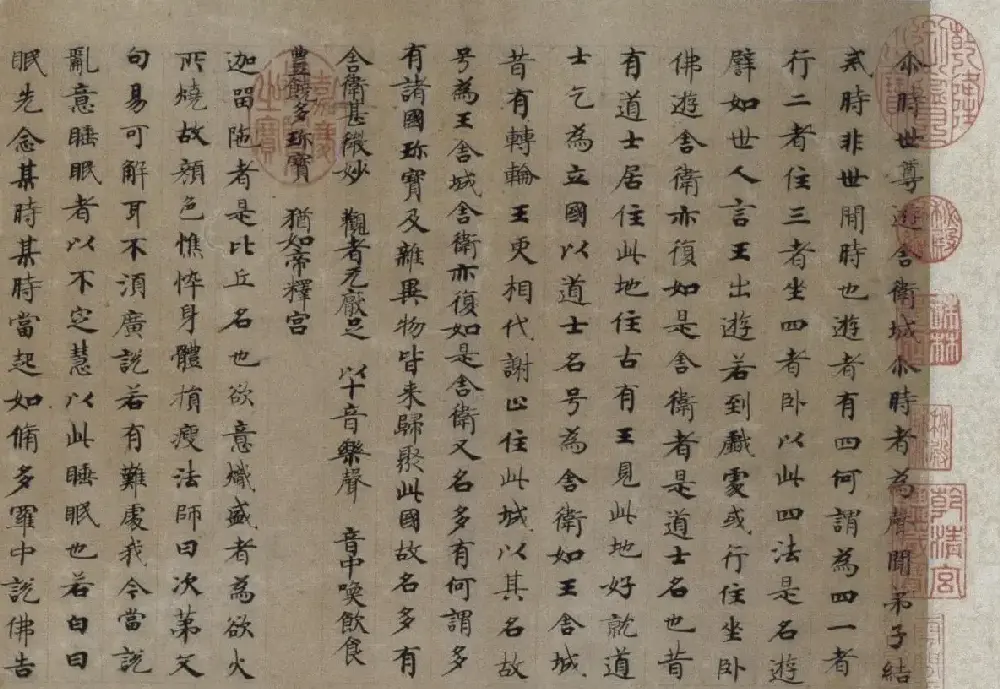 尒時世尊遊舍衛城尒時者為聲聞弟子結
戒時非世間時也遊者有四何謂為四一者
行二者住三者坐四者卧以此四法是名遊
譬如世人言王出遊若到戲處或行住坐卧
佛遊舍衛亦復如是舍衛者是道士名也昔
有道士居住此地住古有王見此地好就道
士乞為立國以道士名号為舍衛如王舍城
昔有轉輪王更相代謝止住此城以其名故
号為王舍城舍衛亦復如是舍衛又名多有何謂多
有諸國珎寶及雜異物皆来歸聚此國故名多有
舍衛甚微妙 觀者无厭足 以十音樂聲 音中喚飲食
豊饒多珎寶 猶如帝釋宮
迦留陁者是比丘名也欲意熾盛者為欲火
所燒故顔色憔悴身體損瘦法師曰次第文
句易可解耳不湏廣說若有難處我今當說
亂意睡眠者以不定慧以此睡眠也若白日
眠先念某時某時當起如脩多羅中說佛告
嘉慶
乾清宮